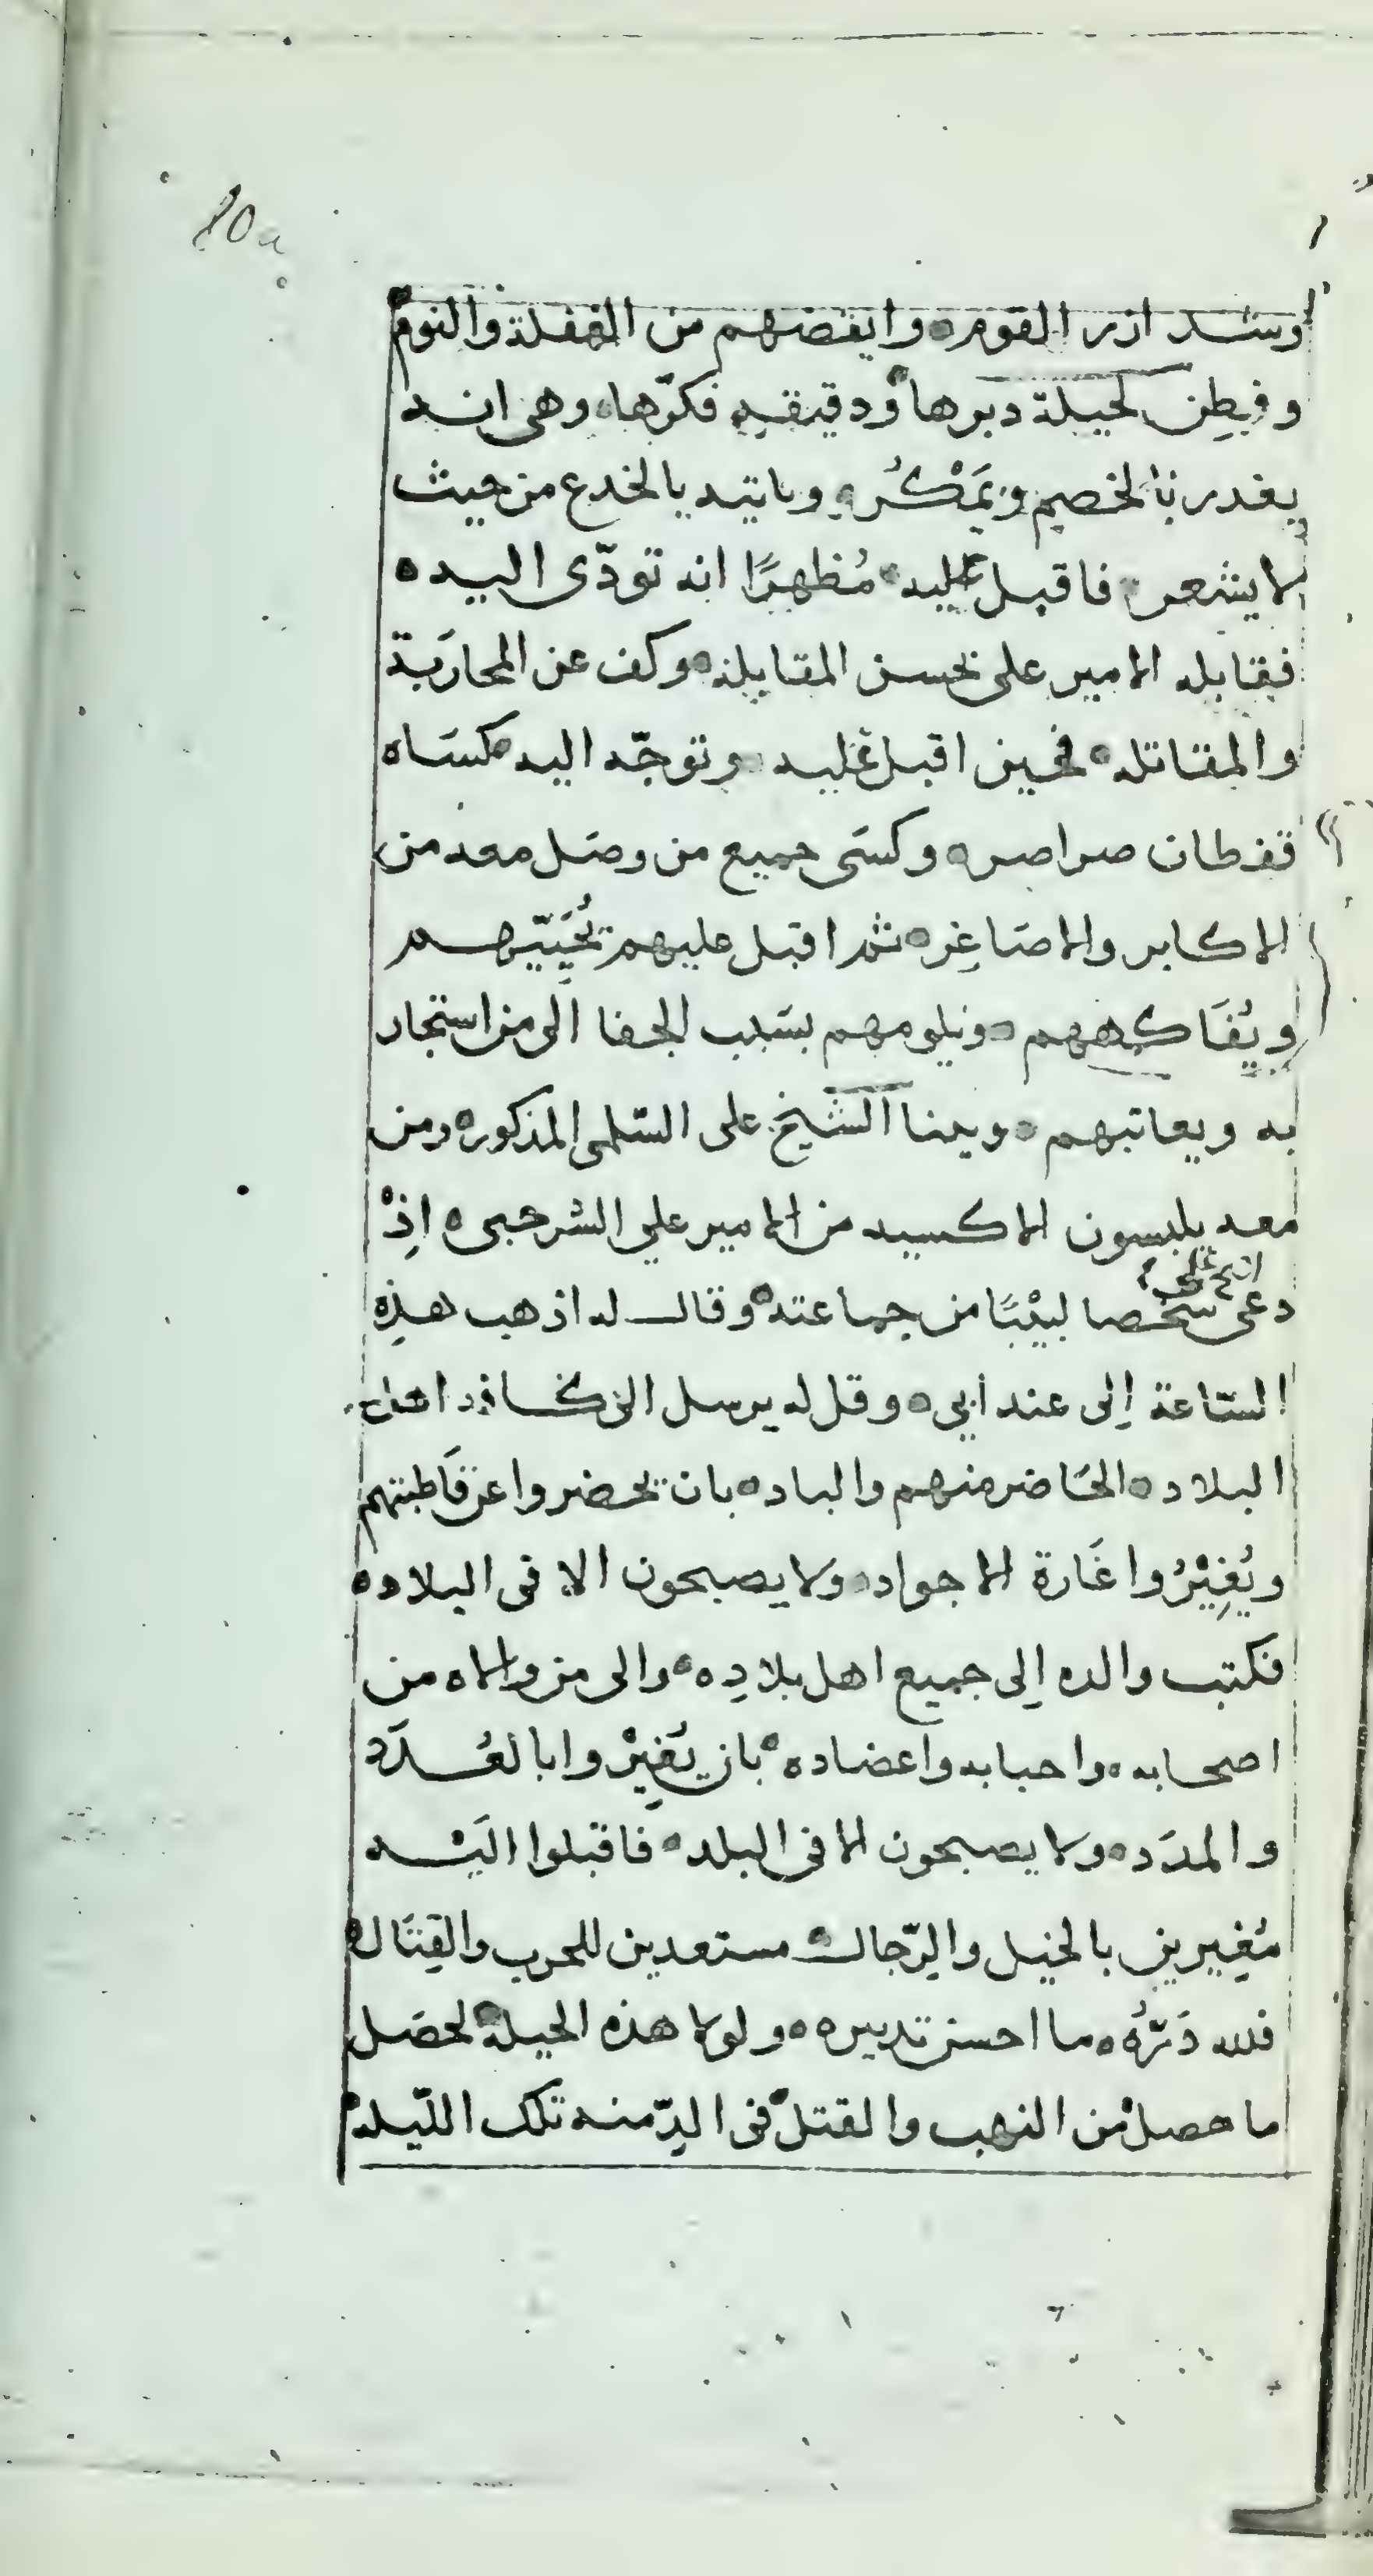 80a
وشد ازر القوم ⁕ وايقضهم من الغفلة والنوم
وفطن لحيلة دبرها ⁕ ودقيقه فكرّها ⁕ وهى انه
يغدر بالخصم ويَمْكُره وياتيه بالخدع من حيث
لا يشعر ⁕ فاقبل عليه ⁕ مُظهرًا انه تودّى اليه ⁕
فقابله الامير على بحسن المقابلة ⁕ وكف عن المحارَبة
والمقاتله ⁕ فحين اقبل عليه ⁕ وتوجّه اليه ⁕ كسَاه
قفطان صراصر ⁕ وكسَى جميع من وصَل معه من
الاكابر والاصَاغِر ⁕ ثم اقبل عليهم يُحَيّيهم
ويُفَاكِههم ⁕ ويلومهم بسَبب الجفا الى من استجار
به ويعاتبهم ⁕ وبينا الشيخ على السّلمى المذكور ⁕ ومن
معه يلبسون الاكسيه من الامير علي الشرجبى ⁕ اِذْ
دعى شخصا لبيْبًا من جماعته ⁕ وقال له اذهب هذِه
السّاعة اِلى عند أبي ⁕ وقل له يرسل الى كافه اهل
البلاد ⁕ الحَاضر منهم والباد ⁕ بان يحضروا عن قاطبتهم
ويُغِيْرُوا غَارة الاجواد ⁕ ولا يصبحون الا فى البلاد ⁕
فكتب والده اِلى جميع اهل بلادِه ⁕ والى من والاه من
اصحابه ⁕ واحبابه واعضاده ⁕ بان يُغِيْروا بالعُدَد
والمدَد ⁕ ولا يصبحون الا فى البلد ⁕ فاقبلوا اليَه
مُغِيرين بالخيل والرّجال ⁕ مستعدين للحرب والقِتَال ⁕
فلله دَرُّه ⁕ ما احسن تدبيره ⁕ ولولا هذه الحيلة لحصَل
ما حصل من النهب والقتل فى الدِّمنه تلك اللّيله ⁕